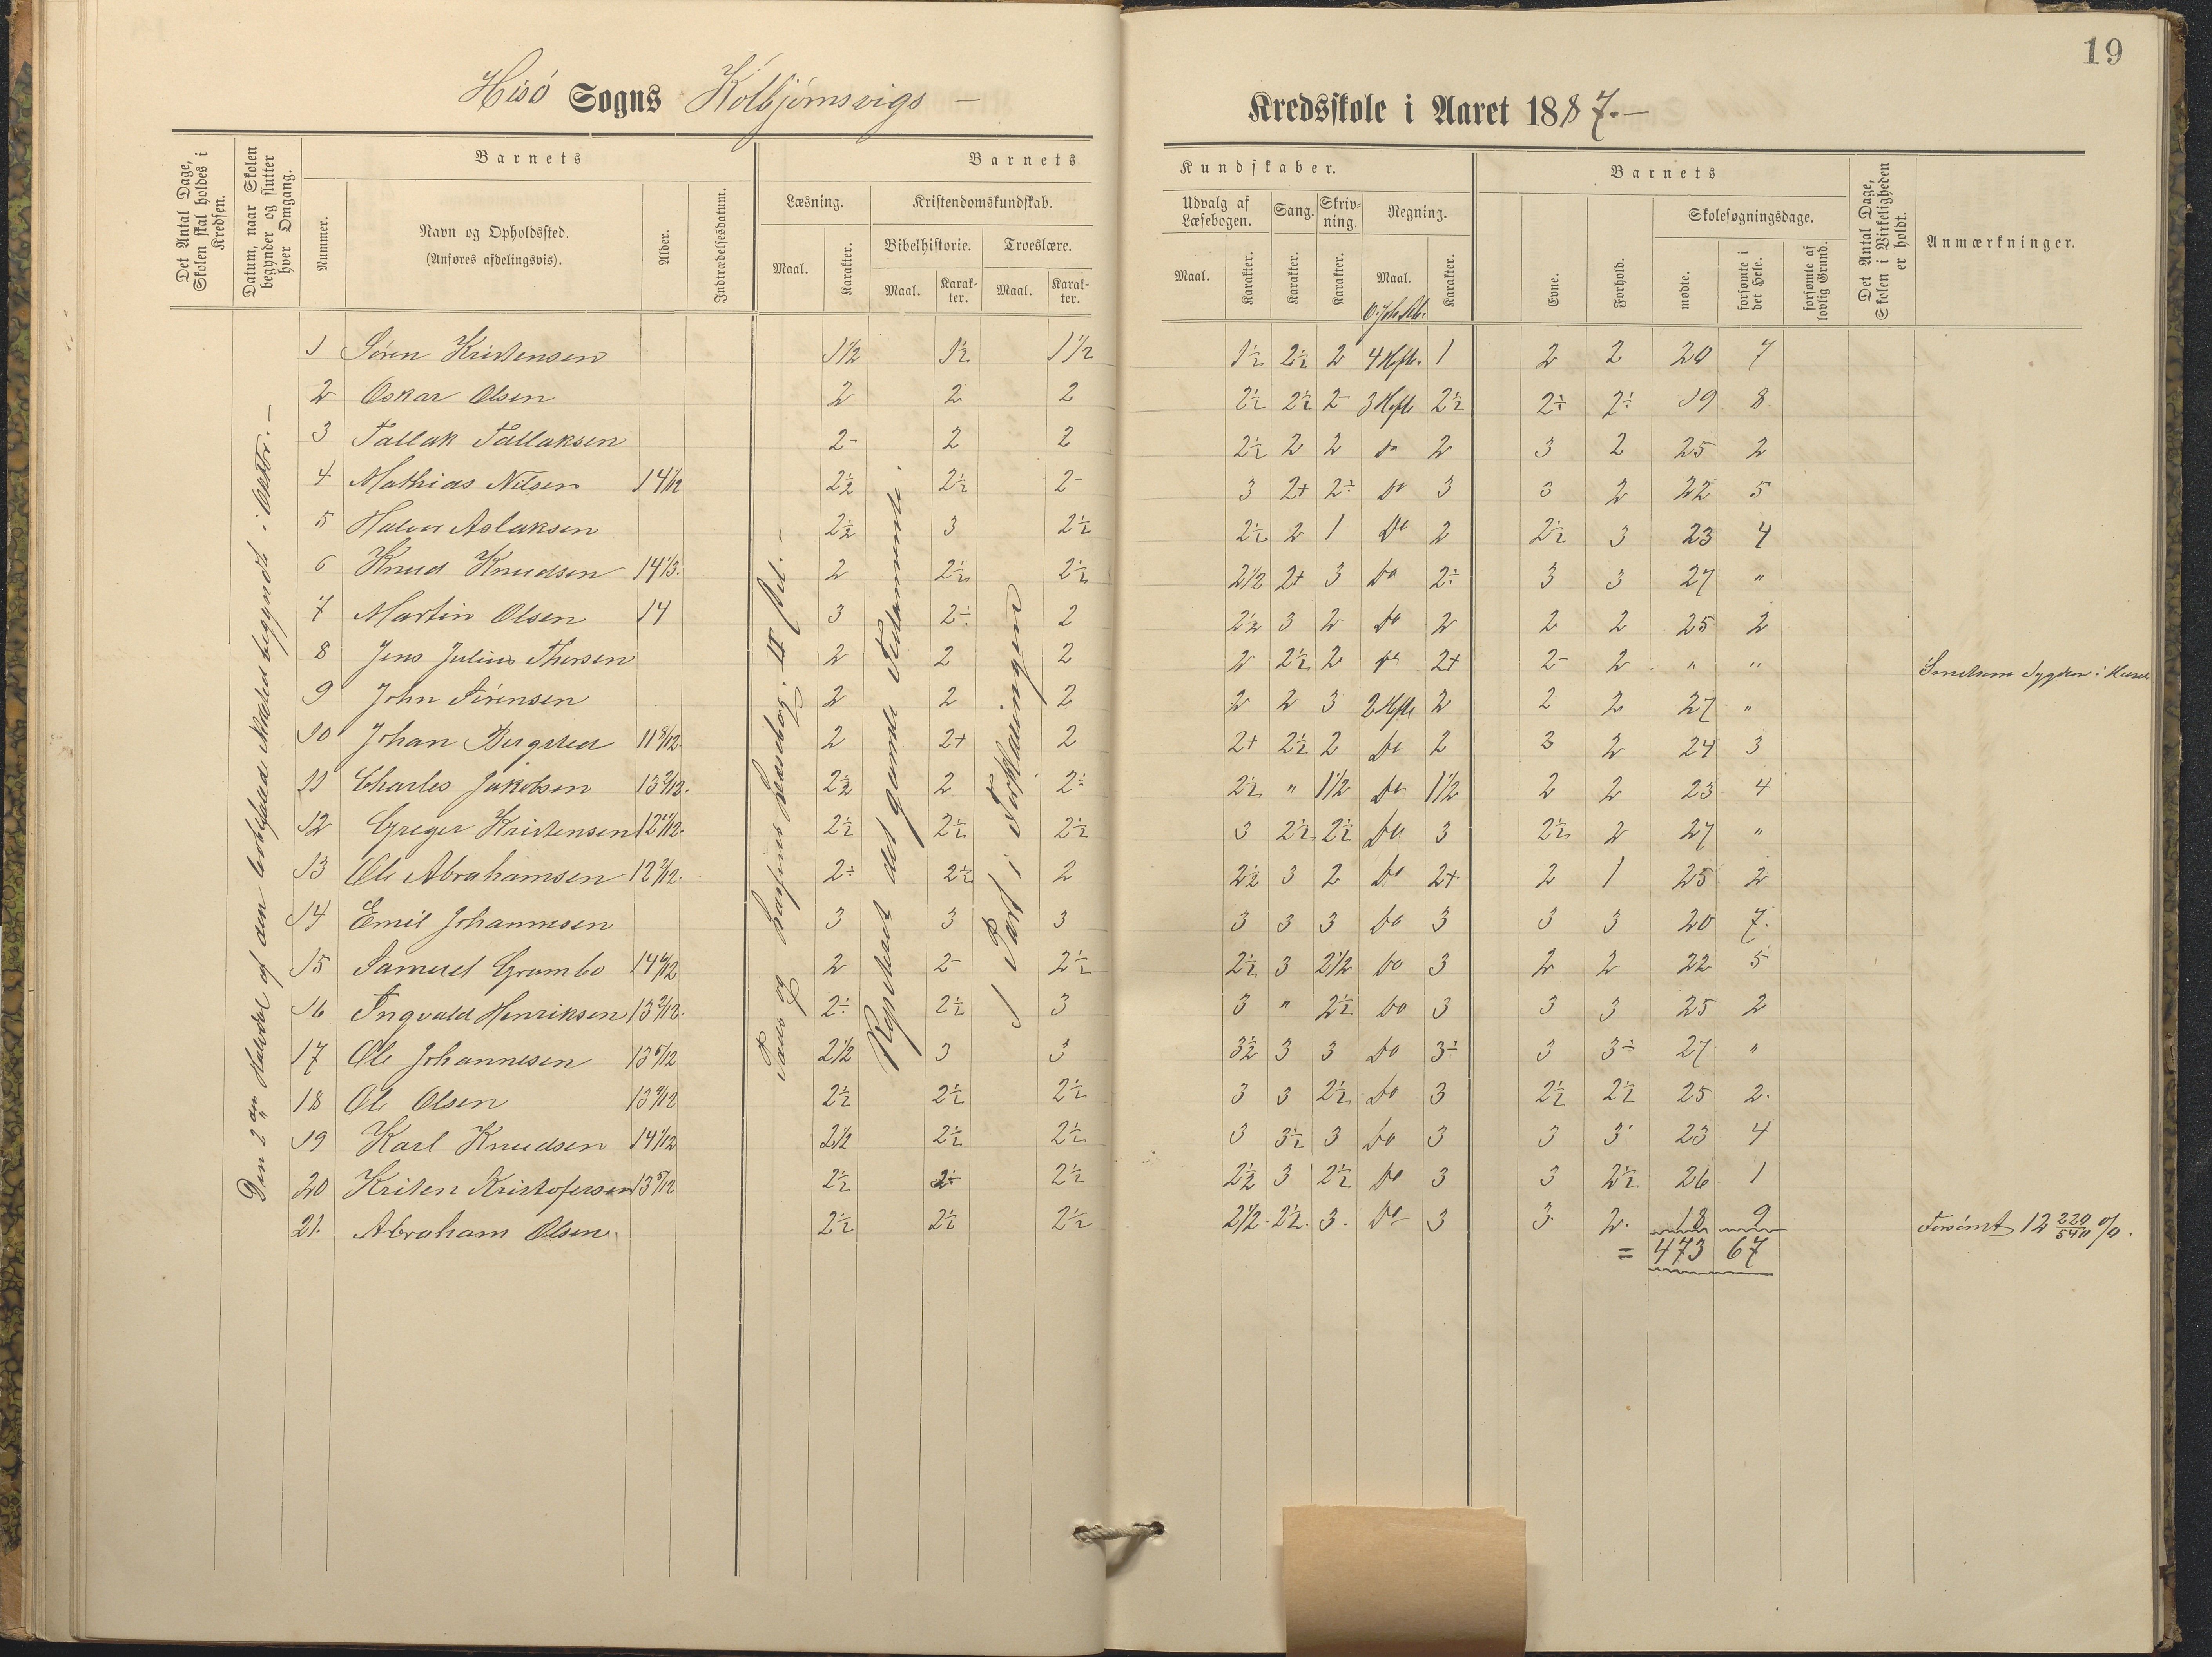 19
Hisö Sogns Kolbjörnsvigs — Kredsskole i Aaret 1887.—
Det Antal Dage, Skolen skal holdes i Kredsen.
Datum, naar Skolen begynder og slutter hver Omgang.
Barnets
Nummer.
Navn og Opholdssted.
(Anføres afdelingsvis).
Alder.
Indtrædelsesdatum.
Barnets Kundskaber.
Læsning.
Maal.
Karakter.
Kristendomskundskab.
Bibelhistorie.
Maal.
Karakter.
Troeslære.
Maal.
Karakter.
Udvalg af Læsebogen.
Maal.
Karakter.
Sang.
Karakter.
Skrivning.
Karakter.
Regning.
Maal.
Karakter.
Barnets
Evne.
Forhold.
Skolesøgningsdage.
mødte.
forsømte i det Hele.
forsømte af lovlig Grund.
Det Antal Dage, Skolen i Virkeligheden er holdt.
Anmærkninger.
Den 2den Halvdel af den Skolen begyndte i Oktbr.—
Læsebog. III
Repeteret det gamle Testamente.
1 Part i Forklaringen
1 Sören Kristensen 1½ 1½ 1½ 1½ 2½ 2 4 Hfte. 1 2 2 20 7
2 Oskar Olsen 2 2 2 2½ 2½ 2- 3 Hefte 2½ 2÷ 2÷ 19 8
3 Tallak Tallaksen 2- 2 2 2½ 2 2 do 2 3 2 25 2
4 Mathias Nilsen 14 1/12 2½ 2½ 2- 3 2+ 2÷ do 3 3 2 22 5
5 Halvor Aslaksen 2½ 3 2½ 2½ 2 1 do 2 2½ 3 23 4
6 Knud Knudsen 14 1/3. 2 2½ 2½ 2½ 2+ 3 do 2÷ 3 3 27 "
7 Martin Olsen 14 3 2÷ 2 2½ 3 2 do 2 2 2 25 2
8 Jens Julius Thorsen 2 2 2 2 2½ 2 do 2+ 2- 2 " " Smitsom Sygdom i Huset
9 John Sörensen 2 2 2 2 2 3 2 Hfte 2 2 2 27 "
10 Johan Bergsted 11 8/12 2 2+ 2 2+ 2½ 2 do 2 3 2 24 3
11 Charles Jakobsen 13 2/12. 2½ 2 2÷ 2½ " 1½ do 1½ 2 2 23 4
12 Greger Kristensen 12 11/12. 2½ 2½ 2½ 3 2½ 2½ do 3 2½ 2 27 "
13 Ole Abrahamsen 12 2/12. 2÷ 2½ 2 2½ 3 2 do 2+ 2 1 25 2
14 Emil Johannesen 3 3 3 3 3 3 do 3 3 3 20 7.
15 Samuel Grambo 14 6/12 2 2- 2½ 2½ 3 2½ do 3 2 2 22 5
16 Ingvald Henriksen 13 2/12. 2÷ 2½ 3 3 " 2½ do 3 3 3 25 2
17 Ole Johannesen 13 5/12 2½ 3 3 3½ 3 3 do 3÷ 3 3÷ 27 "
18 Ole Olsen 13 9/12 2½ 2½ 2½ 3 3 2½ do 3 2½ 2½ 25 2.
19 Karl Knudsen 14 1/12 2½ 2½ 2½ 3 3½ 3 do 3 3 3 23 4
20 Kristen Kristofersen 13 5/12 2½ 2½ 2½ 2½ 3 2½ do 3 3 2½ 26 1
21. Abraham Olsen. 2½ 2½ 2½ 2½. 2½. 3. do 3 3. 2. 18 9 Forsömt 12 220/540 %.
= 473 67